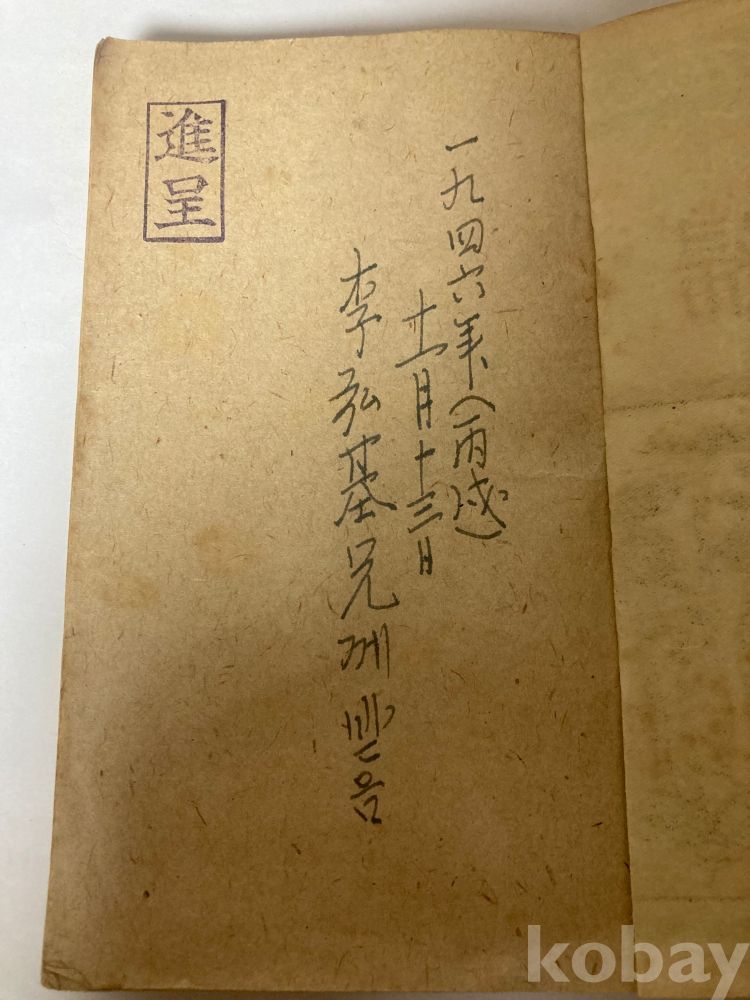 一九四六年(丙戌)
十二月十三日
李弘基兄께받음
進呈
kobay